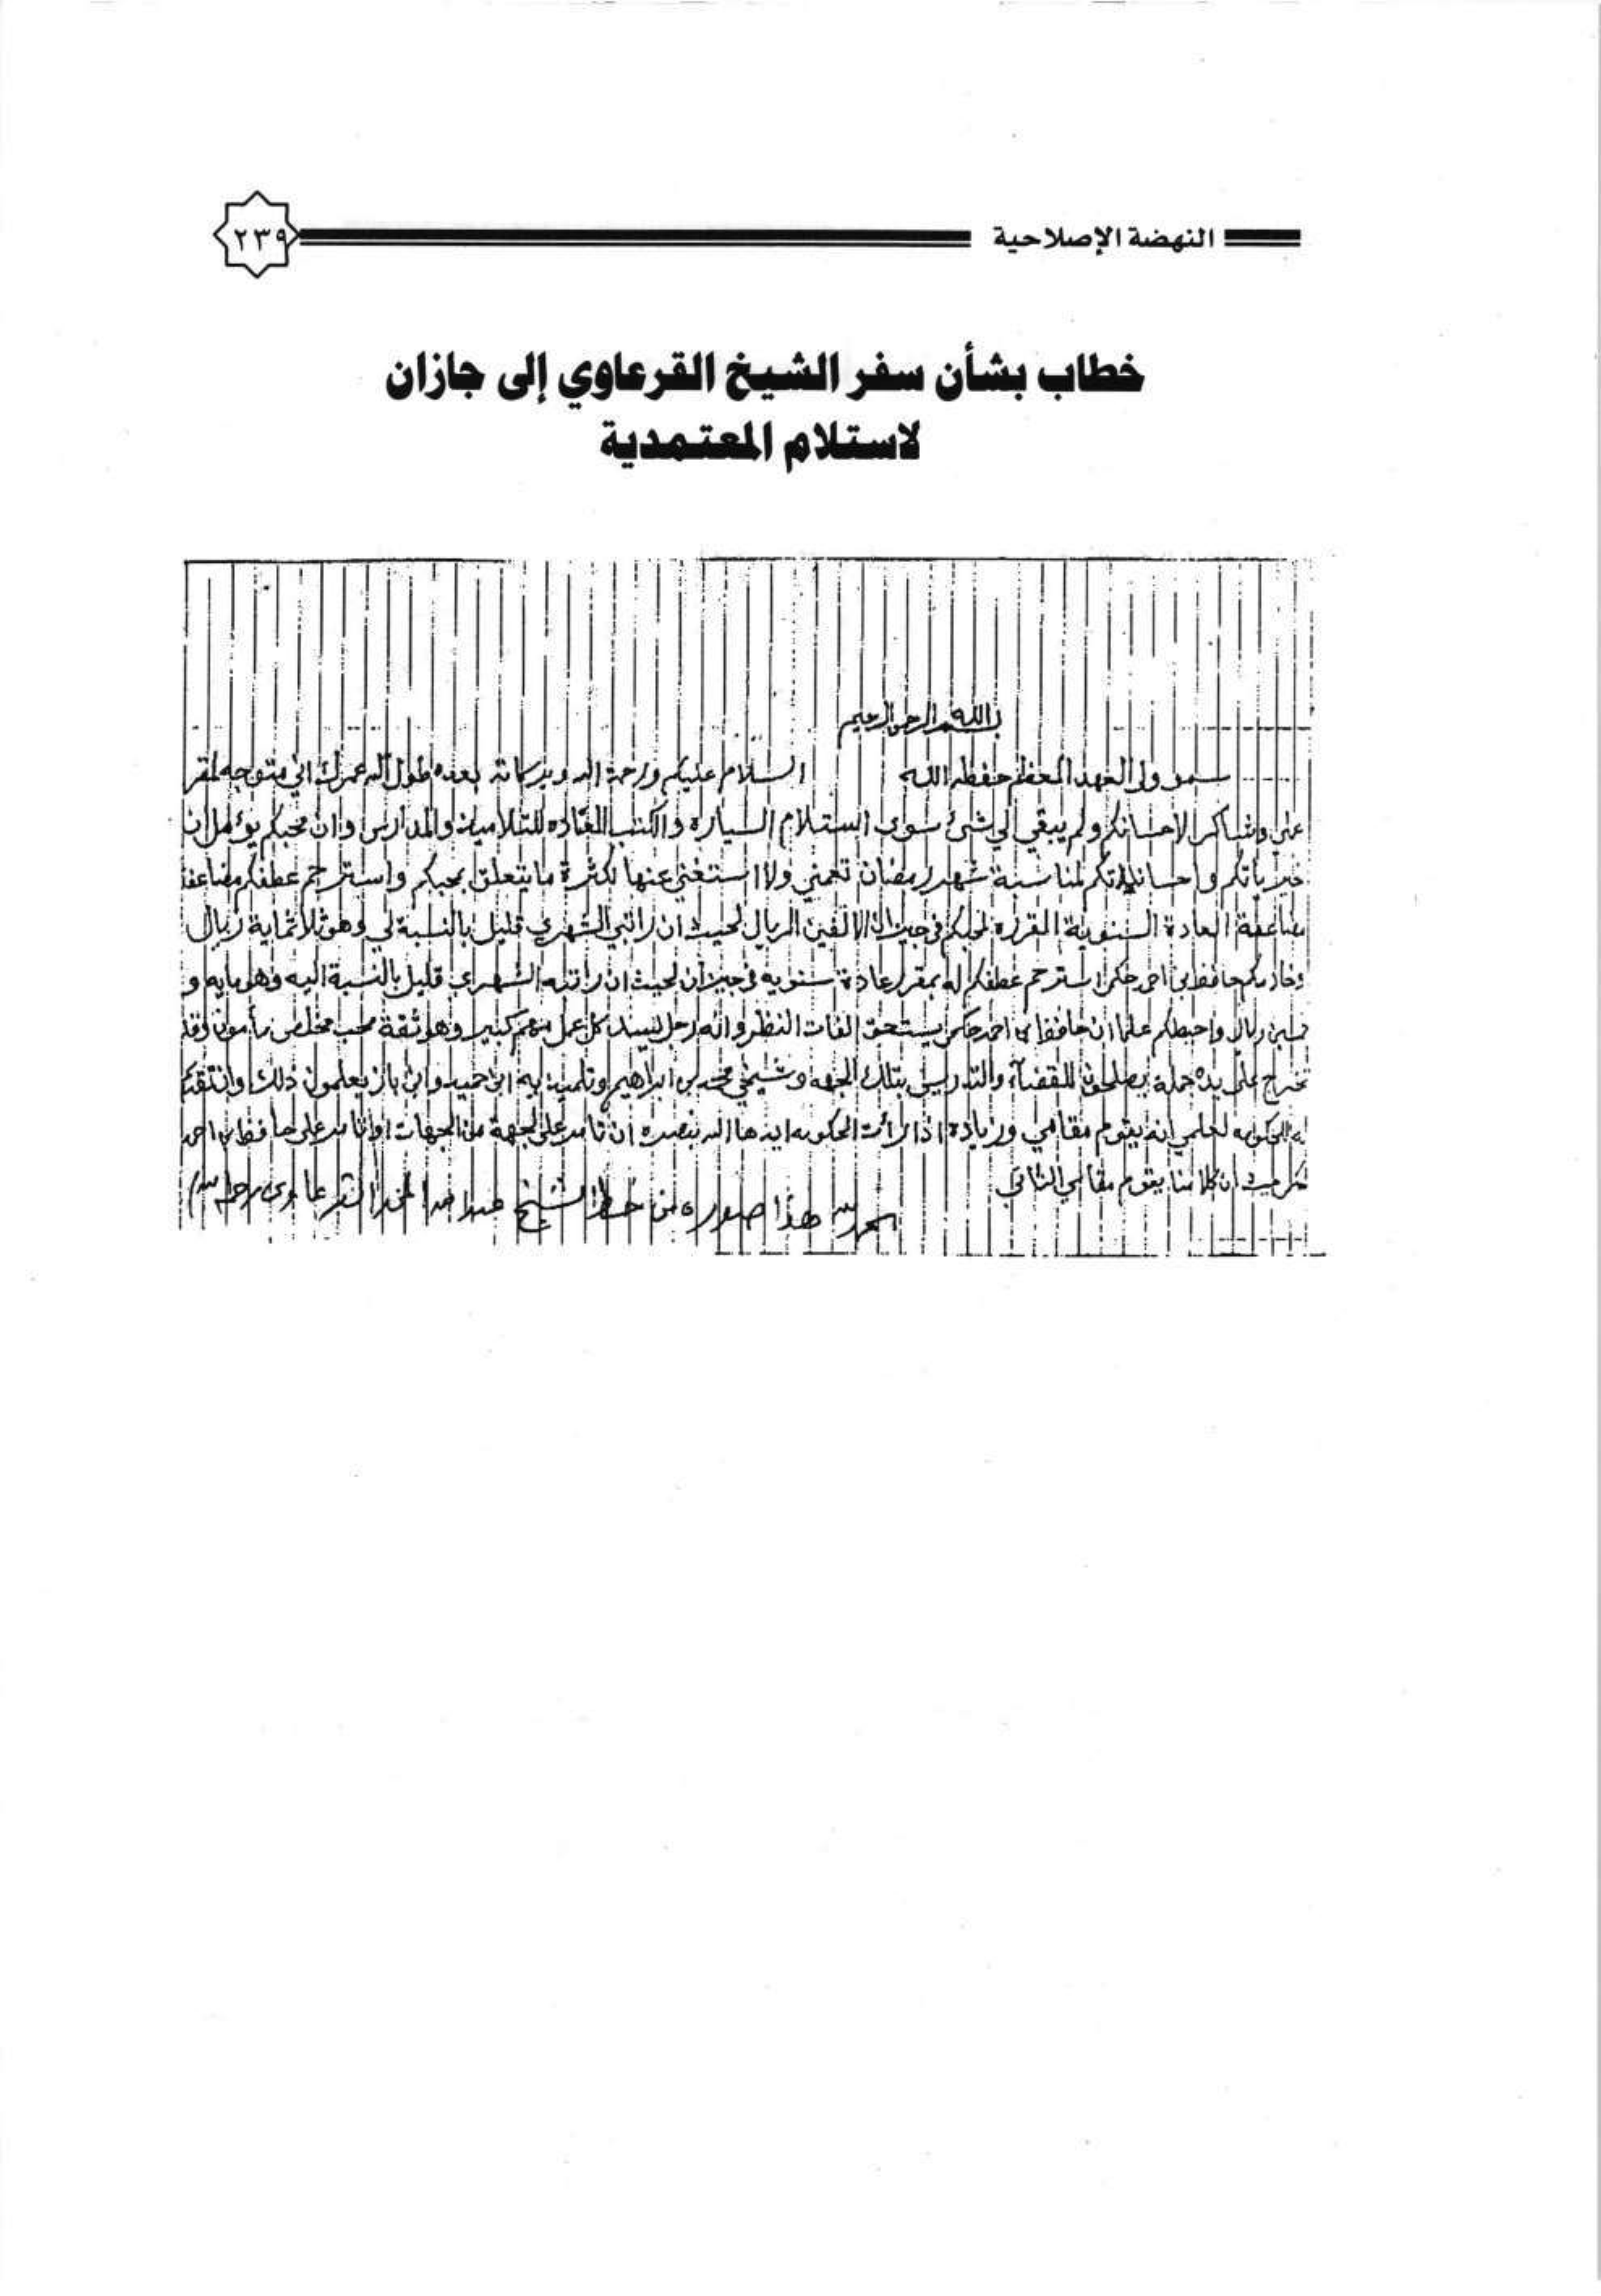 النهضة الإصلاحية
٢٣٩
خطاب بشأن سفر الشيخ القرعاوي إلى جازان
لاستلام المعتمدية
بسم الله الرحمن الرحيم
سمو ولي العهد المعظم حفظه الله السلام عليكم ورحمة الله وبركاته بعده طول الله عمرك اني متوجه لمقر
عملي وشاكر لاحسانكم ولم يبقى لي شئ سوى استلام السياره والكتب المعتاده للتلاميذ والمدارس وان محبكم يؤمل ان
خيرياتكم واحساناتكم لمناسبة شهر رمضان تعمني ولا استغني عنها لكثرة ما يتعلق بمحبكم واسترحم عطفكم مضاعفة
مضاعفة العادة السنوية المقرره لمحبكم في جيزان الالفين الريال لحيث ان راتبي الشهري قليل بالنسبة لي وهو ثلاثماية ريال
وخادمكم حافظ بن احمد حكمي استرحم عطفكم له بمقرر عادة سنويه في جيزان لحيث ان راتبه الشهري قليل بالنسبة اليه وهو مايه و
خمسين ريال واحيطكم علما ان حافظ بن احمد حكمي يستحق الفات النظر وانه رجل يسد كل عمل مهم كبير وهو ثقة محب مخلص مأمون وقد
تخرج على يده جملة يصلحون للقضاء والتدريس بتلك الجهه وشيخي محمد بن ابراهيم وتلميذيه ابن حميد وابن باز يعلمون ذلك
لعلمي انه يقوم مقامي وزياده اذا رأت الحكومه ايدها الله بنصره ان تامر على لجهة من الجهات او تامر على حافظ بن احمد
حكمي ان كلا منا يقوم مقام الثاني
الحمد لله هذا صوره من خط الشيخ عبدالله بن محمد القرعاوي رحمه الله